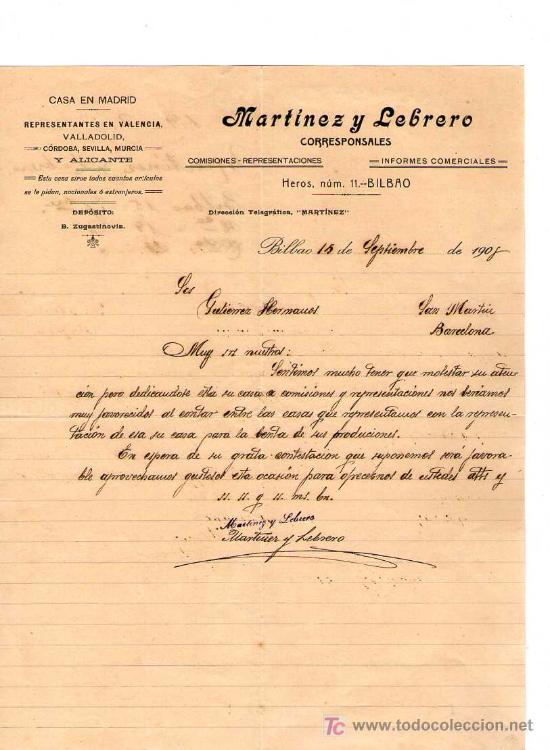 CASA EN MADRID
REPRESENTANTES EN VALENCIA,
VALLADOLID,
CÓRDOBA, SEVILLA, MURCIA
Y ALICANTE
Esta casa sirve todos cuantos artículos
se le pidan, nacionales ó extranjeros.
DEPÓSITO:
B. Zugastinovia.
Martínez y Lebrero
CORRESPONSALES
COMISIONES-REPRESENTACIONES
INFORMES COMERCIALES
Heros, núm. 11.--BILBAO
Dirección Telegráfica, "MARTÍNEZ"
Bilbao 15 de Septiembre de 190
Gutierrez Hermanos San Martin
Barcelona
Muy sres nuestros:
Sentimos mucho tener que molestar su aten-
cion pero dedicandose esta su casa a comisiones y representaciones nos beriamos
muy favorecidos al contar entre las casas que representamos con la represen-
tación de esa su casa para la benta de sus produciones.
En espera de su grata contestación que suponemos será favora-
ble aprovechamos gustosos esta ocasión para ofrecernos de ustedes atts y
s. s. q. s. ms. bn.
Martinez y Lebrero
Martinez y Lebrero
TC www.todocoleccion.net